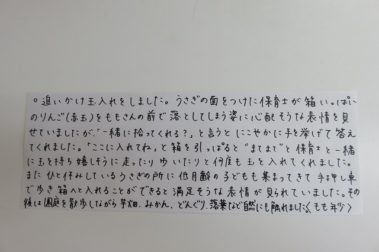 ○追いかけ玉入れをしました。うさぎの面をつけた保育士が箱いっぱい
のりんご(赤玉)をももさんの前で落としてしまう姿に心配そうな表情を見
せていましたが、「一緒に拾ってくれる?」と言うとにこやかに手を挙げて答え
てくれました。「ここに入れてね」と箱を引っぱると"まてまて"と保育士と一緒
に玉を持ち嬉しそうに走ったり歩いたりと何度も玉を入れてくれました。
またひと休みしているうさぎの所に低月齢の子どもも集まってきて手押し車
で歩き箱へと入れることができると満足そうな表情が見られていました。その
後は園庭を散歩しながら芋畑、みかん、どんぐり、落葉など自然にも触れました(もも年少)